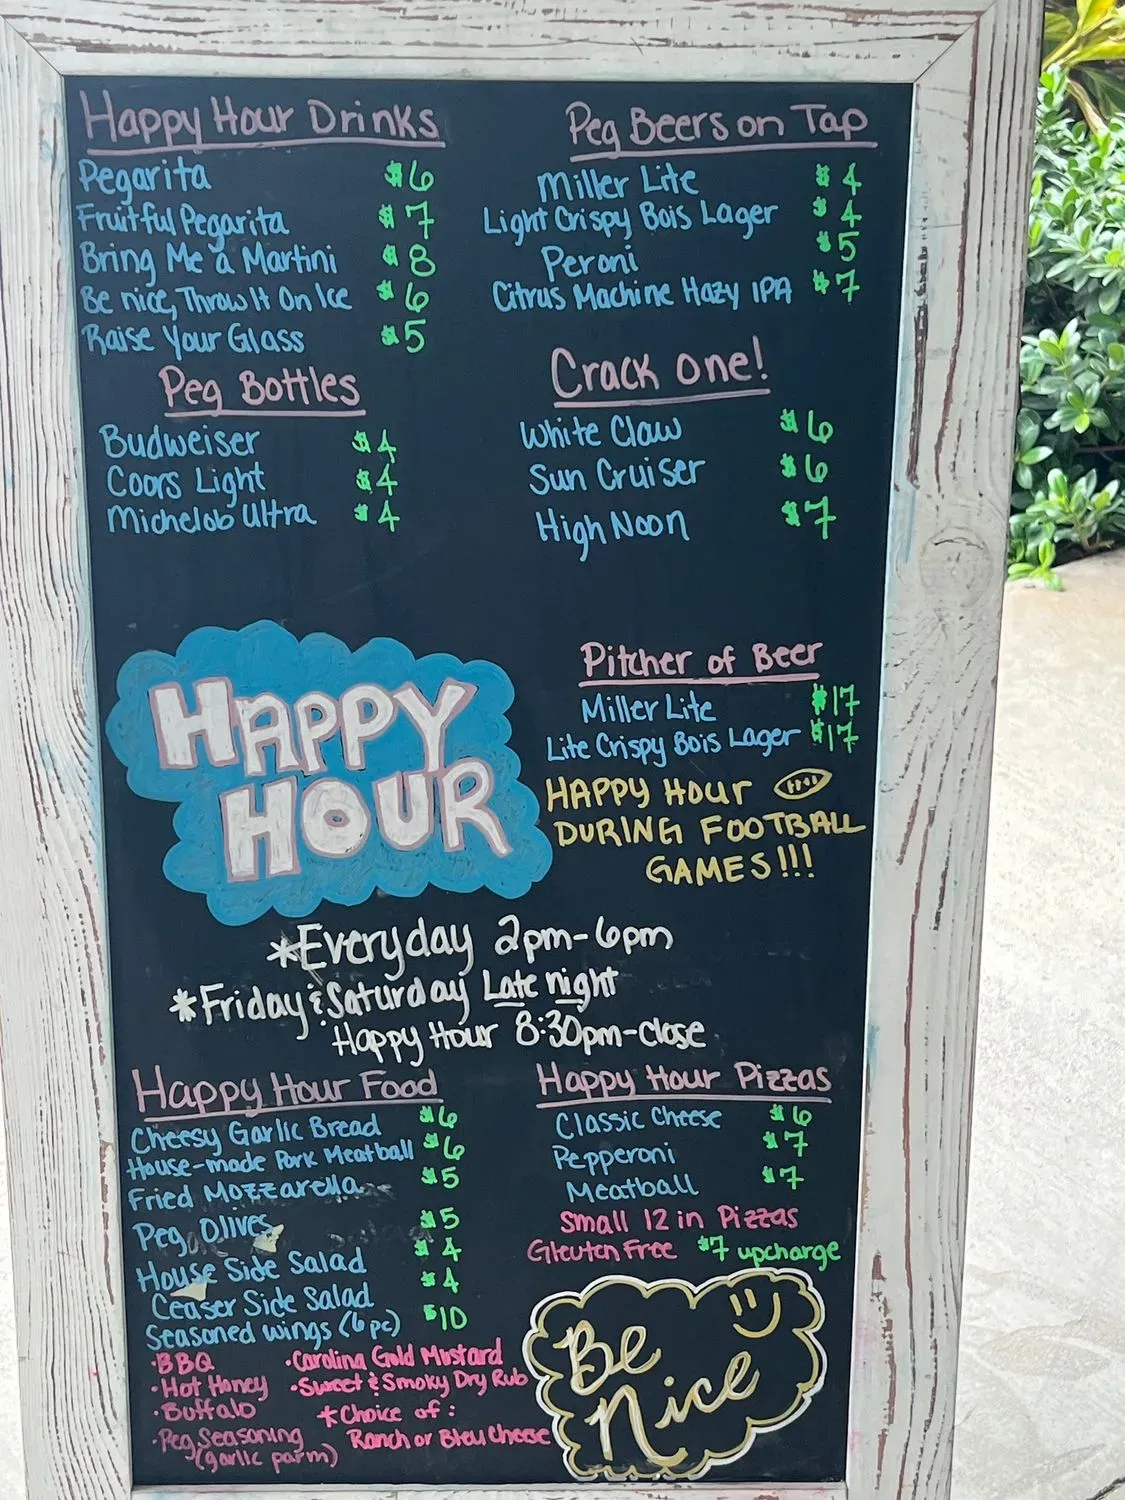 Happy Hour Drinks
Pegarita $6
Fruitful Pegarita $7
Bring Me a Martini $8
Be nice, Throw It On Ice $6
Raise Your Glass $5
Peg Beers on Tap
Miller Lite $4
Light Crispy Bois Lager $4
Peroni $5
Citrus Machine Hazy IPA $7
Peg Bottles
Budweiser $4
Coors Light $4
Michelob Ultra $4
Crack One!
White Claw $6
Sun Cruiser $6
High Noon $7
HAPPY
HOUR
Pitcher of Beer
Miller Lite $17
Lite Crispy Bois Lager $17
HAPPY HOUR
DURING FOOTBALL
GAMES!!!
*Everyday 2pm-6pm
*Friday & Saturday Late night
Happy Hour 8:30pm-close
Happy Hour Food
Cheesy Garlic Bread $6
House-made Pork Meatball $6
Fried Mozzarella $5
Peg Olives $5
House Side Salad $4
Ceaser Side Salad $4
Seasoned Wings (6pc) $10
•BBQ
•Hot Honey
•Buffalo
•Peg Seasoning
(garlic parm)
•Carolina Gold Mustard
•Sweet & Smoky Dry Rub
*Choice of:
Ranch or Bleu Cheese
Happy Hour Pizzas
Classic Cheese $6
Pepperoni $7
Meatball $7
Small 12 in Pizzas
Gleuten Free $7 upcharge
Be
Nice